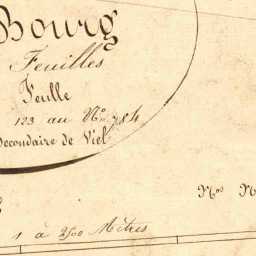 Bourg
Feuilles
Feulle
123 au N° 784
Secondaire de Viel
N°s N
1 à 2500 Mètres